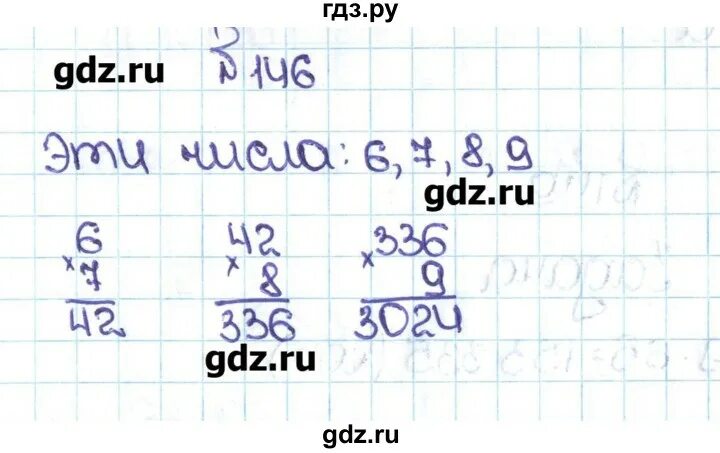 гдз.ру
gdz.ru № 146
Эти числа: 6, 7, 8, 9
gdz.ru
6 42 336
× 7 × 8 × 9
42 336 3024
gdz.ru
gdz.ru